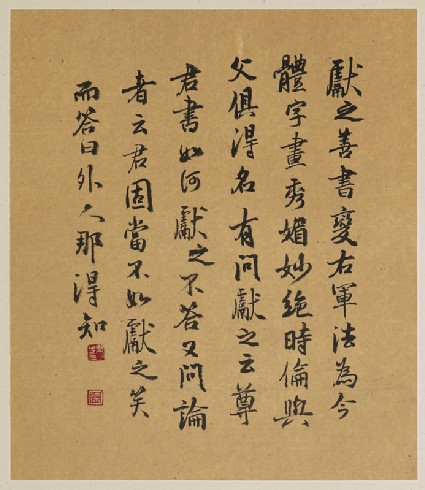 獻之善書變右軍法為今
體字畫秀媚妙絕時倫與
父俱得名有問獻之云尊
君書如何獻之不答又問論
者云君固當不如獻之笑
而答曰外人那得知